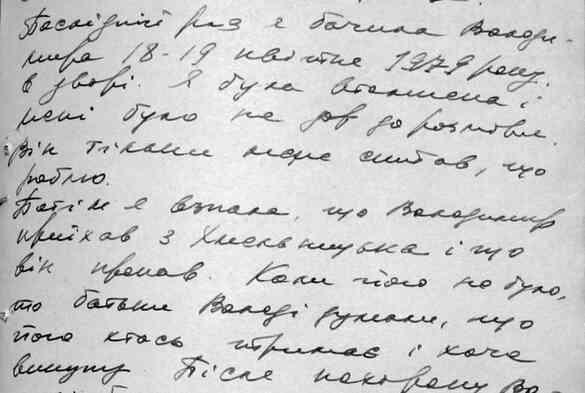 Послідній раз я бачила Володи-
мира 18-19 квітня 1979 року.
в дворі. Я була втомлена і
мені було не до розмови.
Він тільки мене спитав, що
роблю.
Потім я взнала, що Володимир
приїхав з Хмельницька і що
він пропав. Коли його не було,
то батьки Володі думали, що
його хтось тримає і хоче
викупу Після похорону Во-